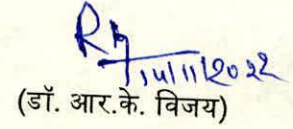 14/11/2022
(डॉ. आर.के. विजय)